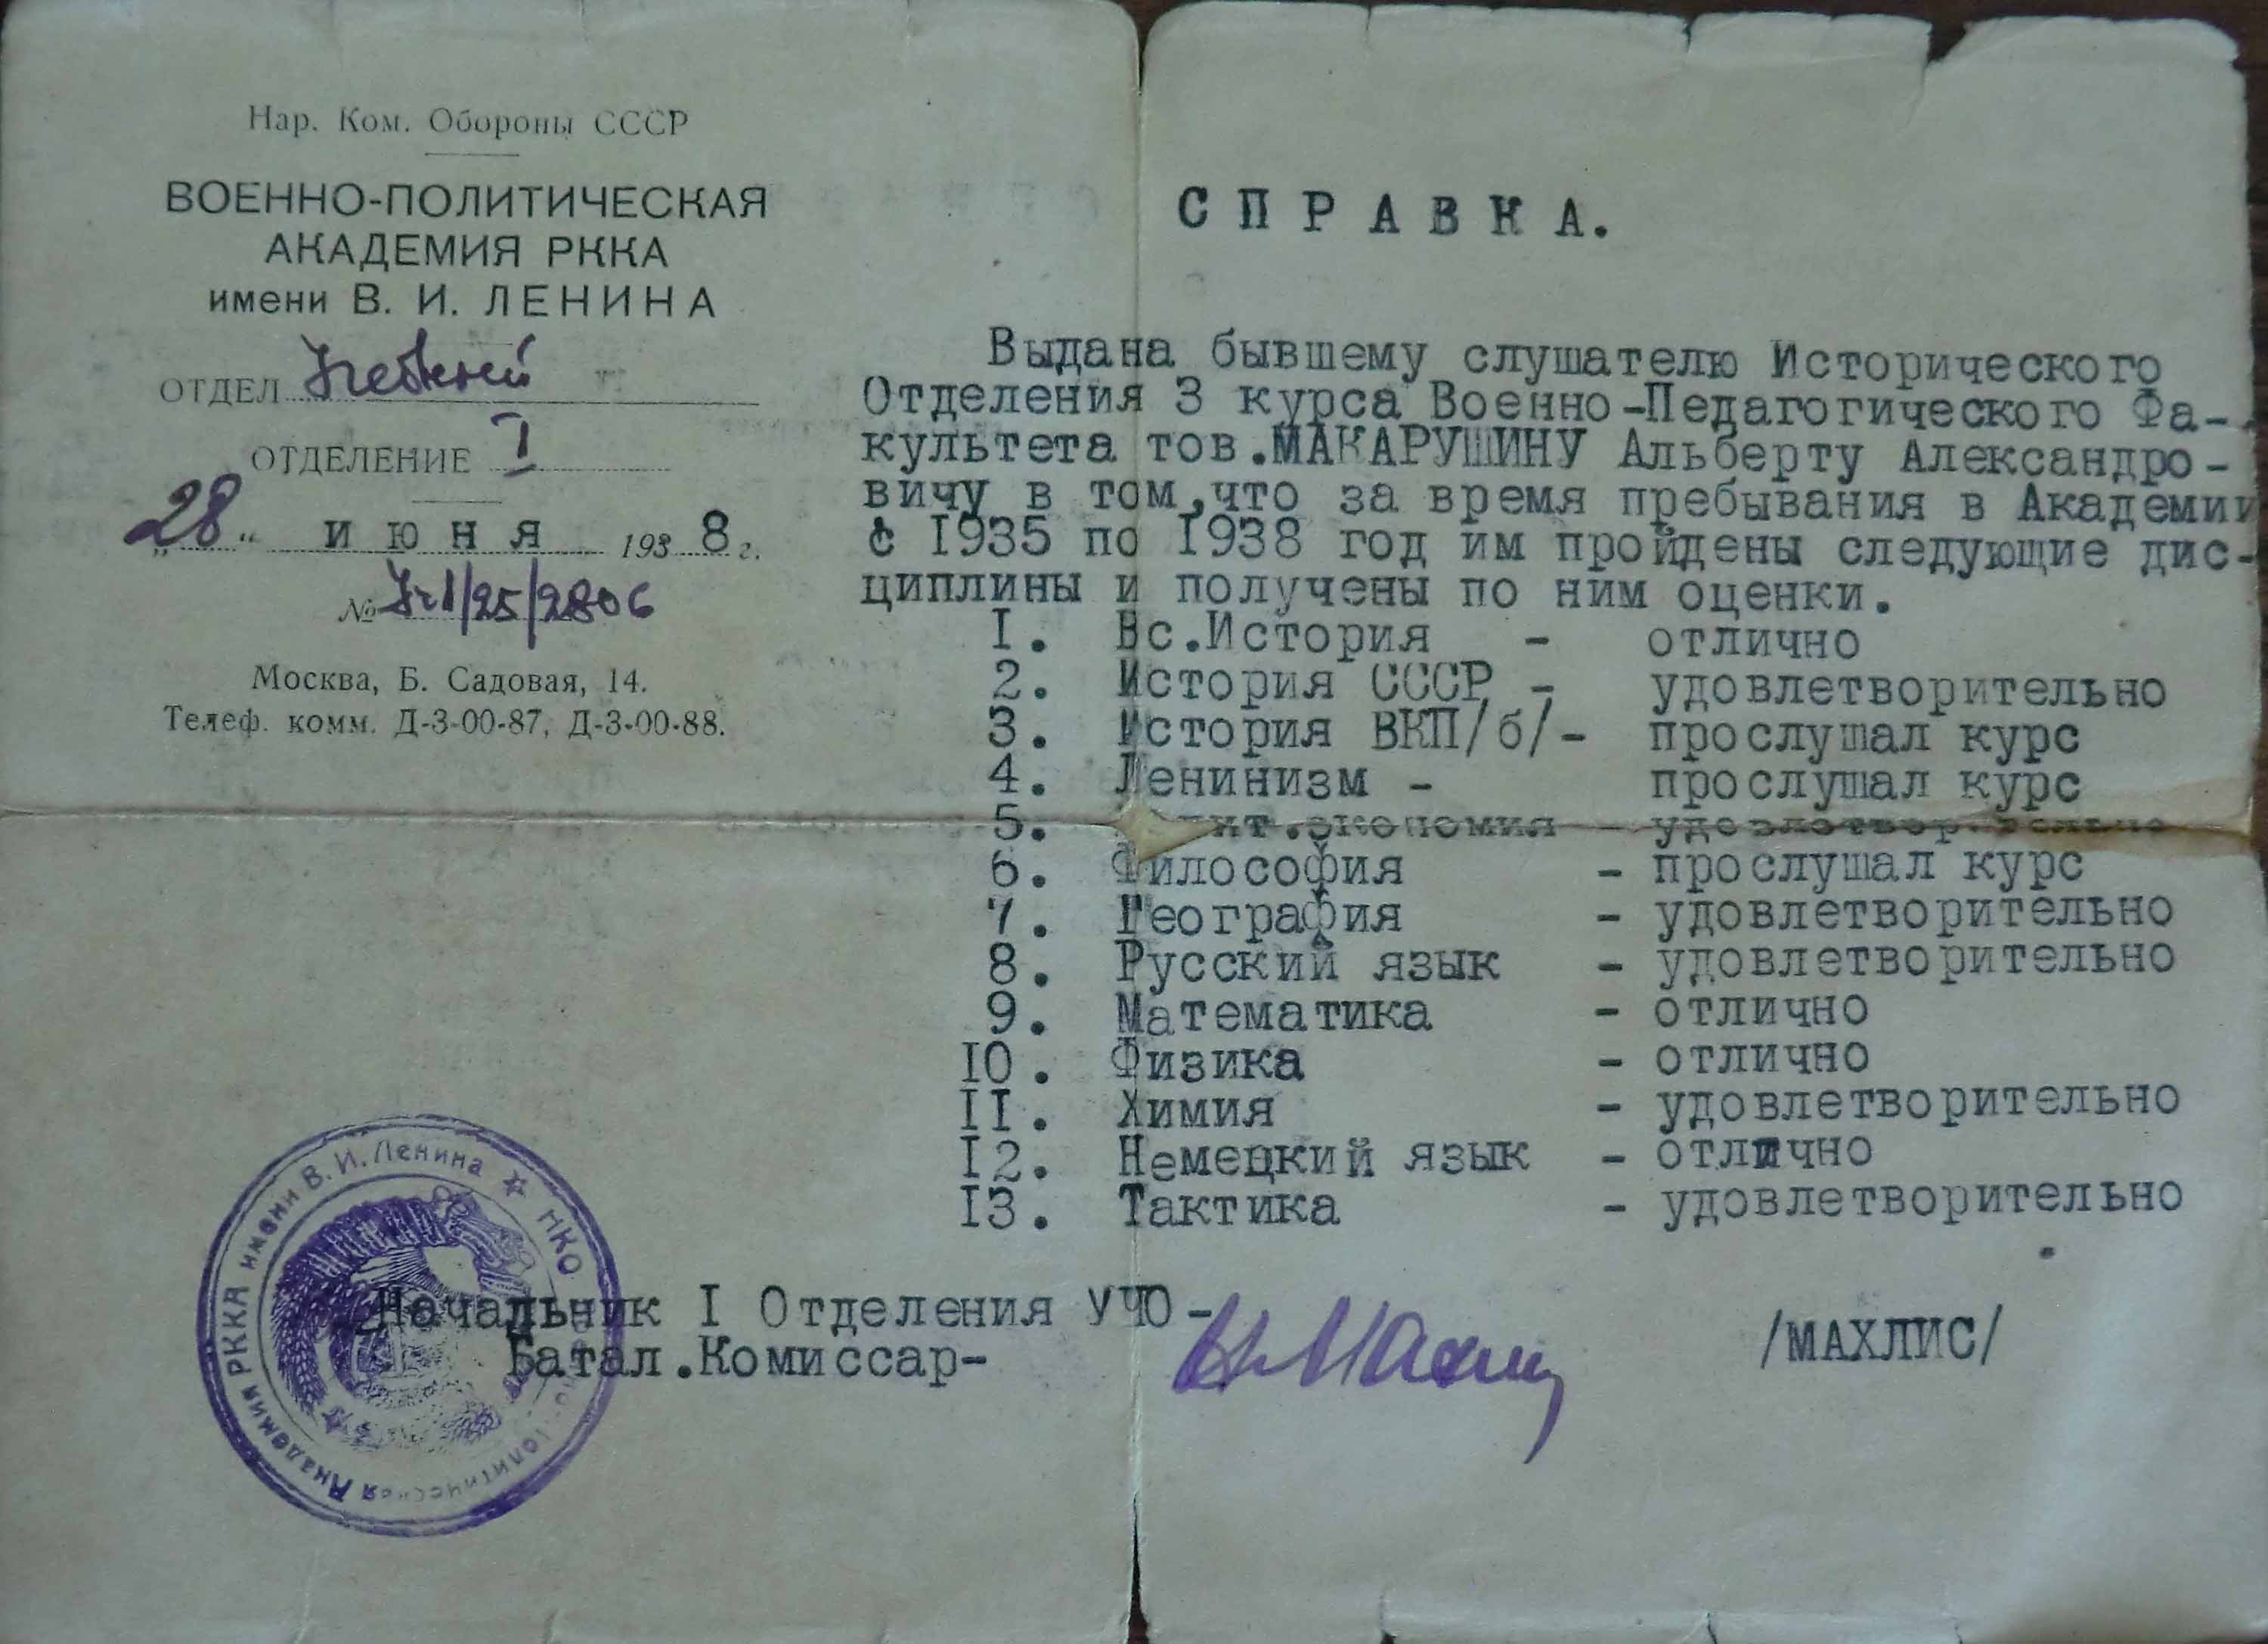 Нар. Ком. Обороны СССР
ВОЕННО-ПОЛИТИЧЕСКАЯ
АКАДЕМИЯ РККА
имени В. И. ЛЕНИНА
ОТДЕЛ Учебный
ОТДЕЛЕНИЕ I
„28“ июня 1938 г.
№ Уч1/25/2806
Москва, Б. Садовая, 14.
Телеф. комм. Д-3-00-87, Д-3-00-88.
СПРАВКА.
Выдана бывшему слушателю Исторического
Отделения 3 курса Военно-Педагогического Фа-
культета тов.МАКАРУШИНУ Альберту Александро-
вичу в том,что за время пребывания в Академии
с 1935 по 1938 год им пройдены следующие дис-
циплины и получены по ним оценки.
I. Вс.История - отлично
2. История СССР - удовлетворительно
3. История ВКП/б/- прослушал курс
4. Ленинизм - прослушал курс
5. Полит.экономия - удовлетворительно
6. Философия - прослушал курс
7. География - удовлетворительно
8. Русский язык - удовлетворительно
9. Математика - отлично
IO. Физика - отлично
II. Химия - удовлетворительно
I2. Немецкий язык - отлично
I3. Тактика - удовлетворительно
Начальник I Отделения УЧО-
Батал.Комиссар- /МАХЛИС/
НКО Военно-Политическая Академия РККА имени В. И. Ленина